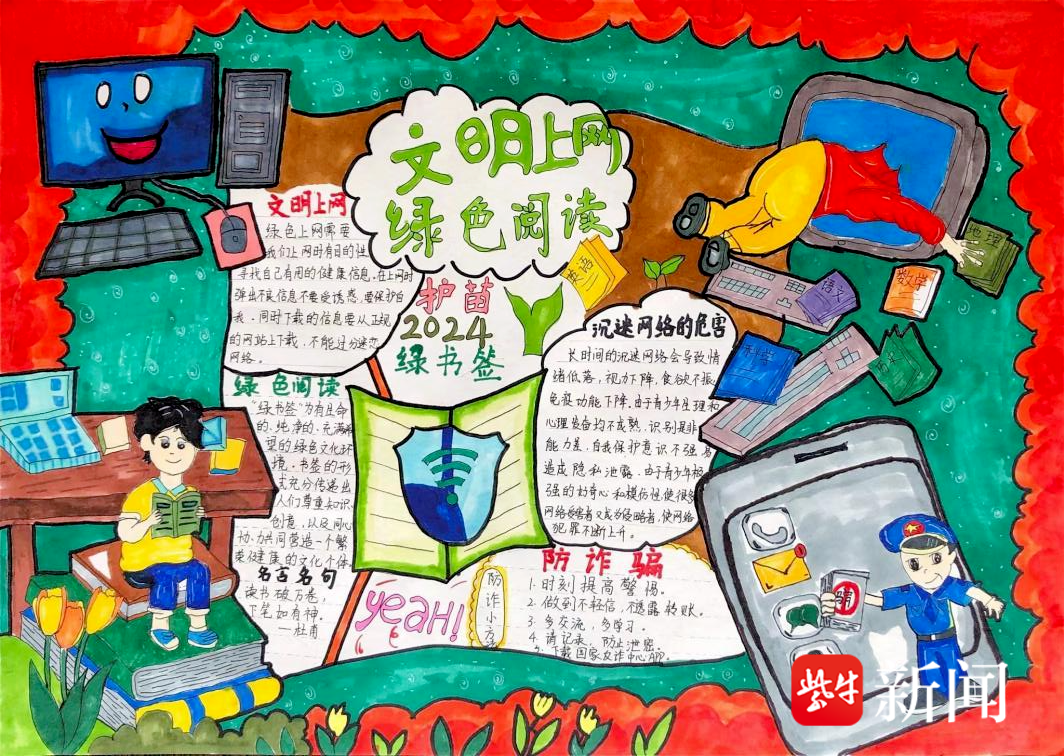 文明上网
绿色阅读
文明上网
绿色上网需要
我们上网时有目的性
寻找自己有用的健康信息。在上网时
弹出不良信息不要受诱惑,要保护自
我,同时下载的信息要从正规
的网站上下载,不能过分迷恋
网络。
护苗
2024
绿书签
绿色阅读
“绿书签”为有生命
的、纯净的、充满希
望的绿色文化环
境,书签的形
式充分传递出
人们尊重知识、
创意,以及同心
协力共同营造一个繁
荣健康的文化个体
名古名句
读书破万卷,
下笔如有神。
—杜甫
英语
沉迷网络的危害
长时间的沉迷网络会导致情
绪低落,视力下降,食欲不振
免疫功能下降。由于青少年生理和
心理发备均不成熟,识别是非
能力差,自我保护意识不强易
造成隐私泄露,由于青少年极
强的好奇心和模仿性使很多
网络受害者又成为侵略者,使网络
犯罪不断上升。
地理
数学
语文
科学
防诈骗
1.时刻提高警惕。
2.做到不轻信,不透露转账。
3.多交流,多学习。
4.请记录,防止泄密。
5.下载国家反诈中心APP。
防诈小方
yeah!
紫牛
新闻